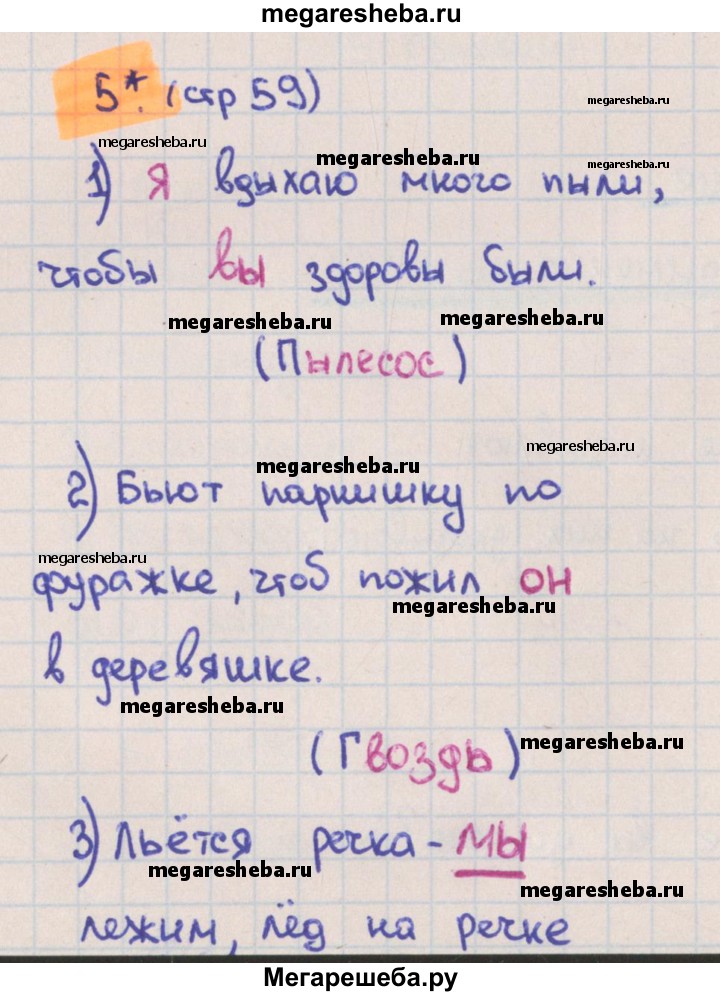 megaresheba.ru
5*. (стр 59)
megaresheba.ru
megaresheba.ru
megaresheba.ru
megaresheba.ru
1) Я вдыхаю много пыли,
чтобы вы здоровы были.
megaresheba.ru
megaresheba.ru
(Пылесос)
megaresheba.ru
megaresheba.ru
2) Бьют парнишку по
megaresheba.ru
фуражке, чтоб пожил он
megaresheba.ru
в деревяшке.
megaresheba.ru
megaresheba.ru
(Гвоздь)
3) Льётся речка - мы
megaresheba.ru
megaresheba.ru
лежим, лёд на речке
Мегарешеба.ру